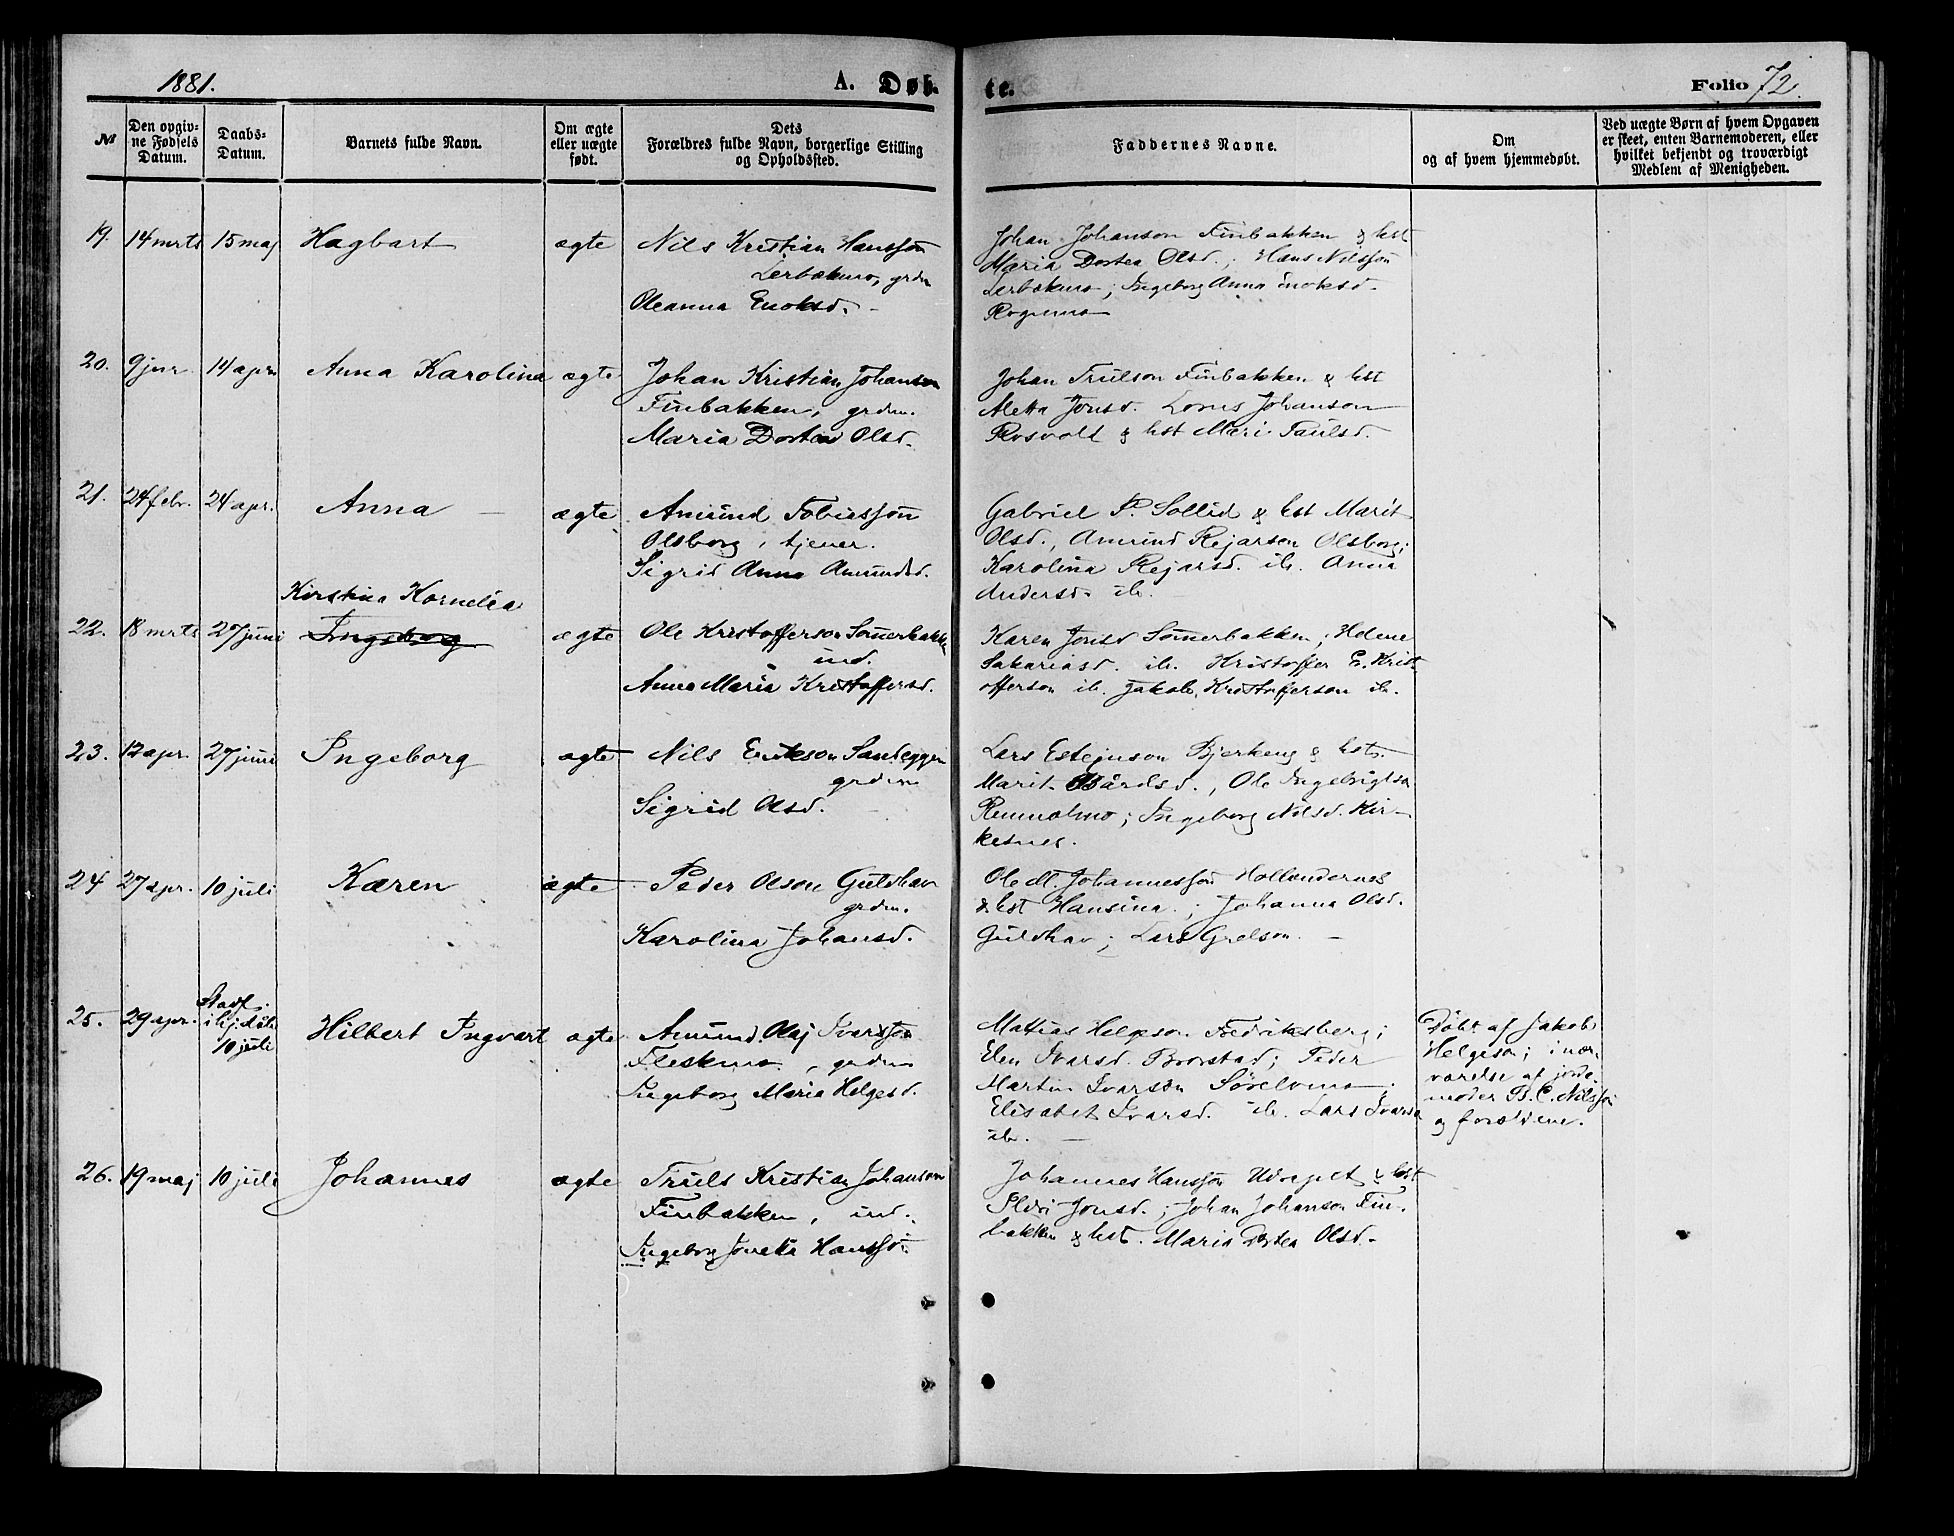 1881.
A. Døb-
te.
Folio 72.
№
Den opgiv-
ne Fødsels
Datum.
Daabs-
Datum.
Barnets fulde Navn.
Om ægte
eller uægte
født.
Dets
Forældres fulde Navn, borgerlige Stilling
og Opholdssted.
Faddernes Navne.
Om
og af hvem hjemmedøbt.
Ved uægte Børn af hvem Opgaven
er skeet, enten Barnemoderen, eller
hvilket bekjendt og troværdigt
Medlem af Menigheden.
19. 14 mrts 15 maj Hagbart ægte Nils Kristian Hansson
Lerbakmo, grdm
Oleanna Enoksd.
Johan Johanson Finbakken & hst
Maria Dortea Olsd.; Hans Nilsson
Lerbakmo; Ingeborg Anna Enoksd.
Rognmo
20. 9 jnr. 14 apr. Anna Karolina ægte Johan Kristian Johanson
Finbakken, grdm.
Maria Dortea Olsd.
Johan Trulson Finbakken & hst
Aletta Jonsd. Johanson
Rosvold & hst Meri Paulsd.
21. 24 febr. 24 apr. Anna ægte Amund Tobiasson
Olsborg, tjener.
Sigrid Anna Amundsd.
Gabriel P. Sollid & hst Marit
Olsd., Amund Rejarson Olsborg;
Karolina Rejarsd. ib. Anna
Andersd. ib.
Kirstina Kornelia
22. 18 mrts 27 juni Ingeborg ægte Ole Kristofferson Sommerbakken
ind.
Anna Maria Kristoffersd.
Karen Jonsd Sommerbakken; Helene
Sakariasd. ib. Kristoffer E. Krist-
offerson ib. Jakob Kristofferson ib.
23. 12 apr. 27 juni Ingeborg ægte Nils Erikson Sandeggen
grdm
Sigrid Olsd.
Lars Estejnson Bjerkeng & hst.
Marit Bårdsd., Ole Ingebrigtson
; Ingeborg Nilsd. Kir-
kesnes.
24 27 apr. 10 juli Karen ægte Peder Olson Guldhav
grdm.
Karolina Johansd.
Ole M. Johannesson Hollendernes
& hst Hansina.; Johanna Olsd.
Guldhav; Lars Grelson.
25. 29 apr. Stadf.
i hj.døbt
10 juli Hilbert Ingvart ægte Amund Olaj Ivarson
Fleskmo, grdm
Ingeborg Maria Helgesd.
Mattias Helgeson Fredriksberg;
Elen Ivarsd. Brorstad; Peder
Martin Ivarson Sörelvmo;
Elisabet Ivarsd. ib. Lars Ivarson
ib.
Døbt af Jakob
Helgeson; i nær-
værelse af jorde-
moder B. C. Nilsson
og forældrene.
26. 19 maj 10 juli Johannes ægte Truls Kristian Johanson
Finbakken, ind.
Ingeborg Joneta Hansson
Johannes Hansson & hst
Jonsd.; Johan Johanson Fin-
bakken & hst. Maria Dortea Olsd.